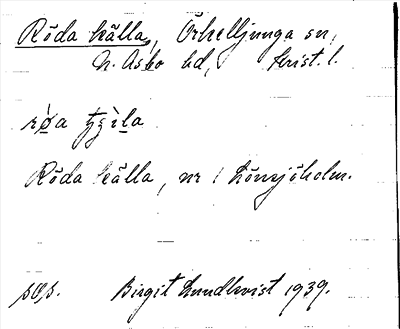 Röda källa, Örkelljunga sn,
N. Åsbo hd, Krist. l.
Röda källa, nr Lönsjöholm.
søs. Birgit Lundkvist 1939.